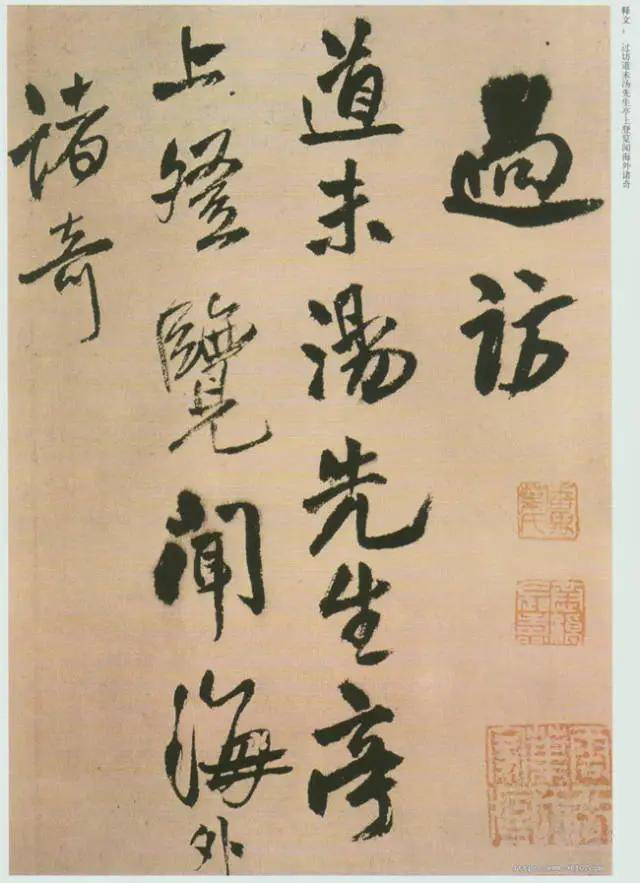 過訪
道未湯先生亭
上登覽聞海外
諸奇
释文：过访道未汤先生亭上登览闻海外诸奇